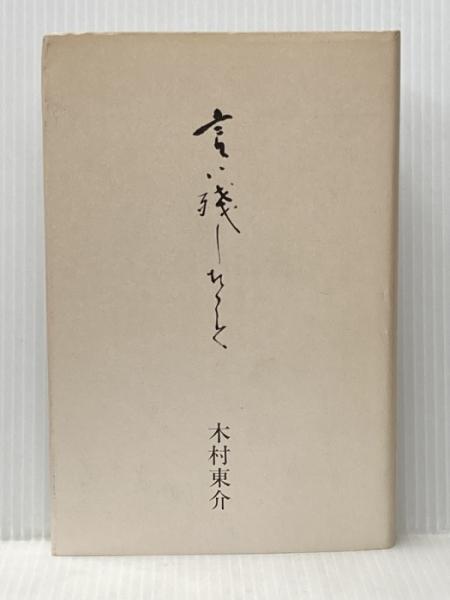 言い残したく
木村東介